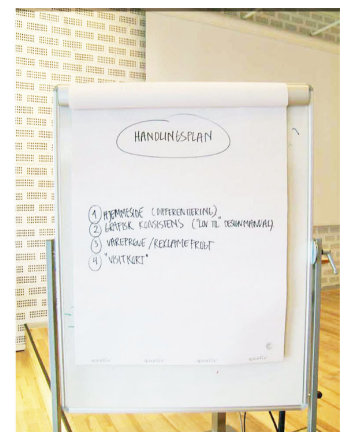 HANDLINGSPLAN
1 HJEMMESIDE (DIFFERENTIERING)
2 GRAFISK KONSISTENS ("LOV TIL DESIGNMANUAL)
3 VAREPRØVE/REKLAMEFRUGT
4 "VISITKORT"